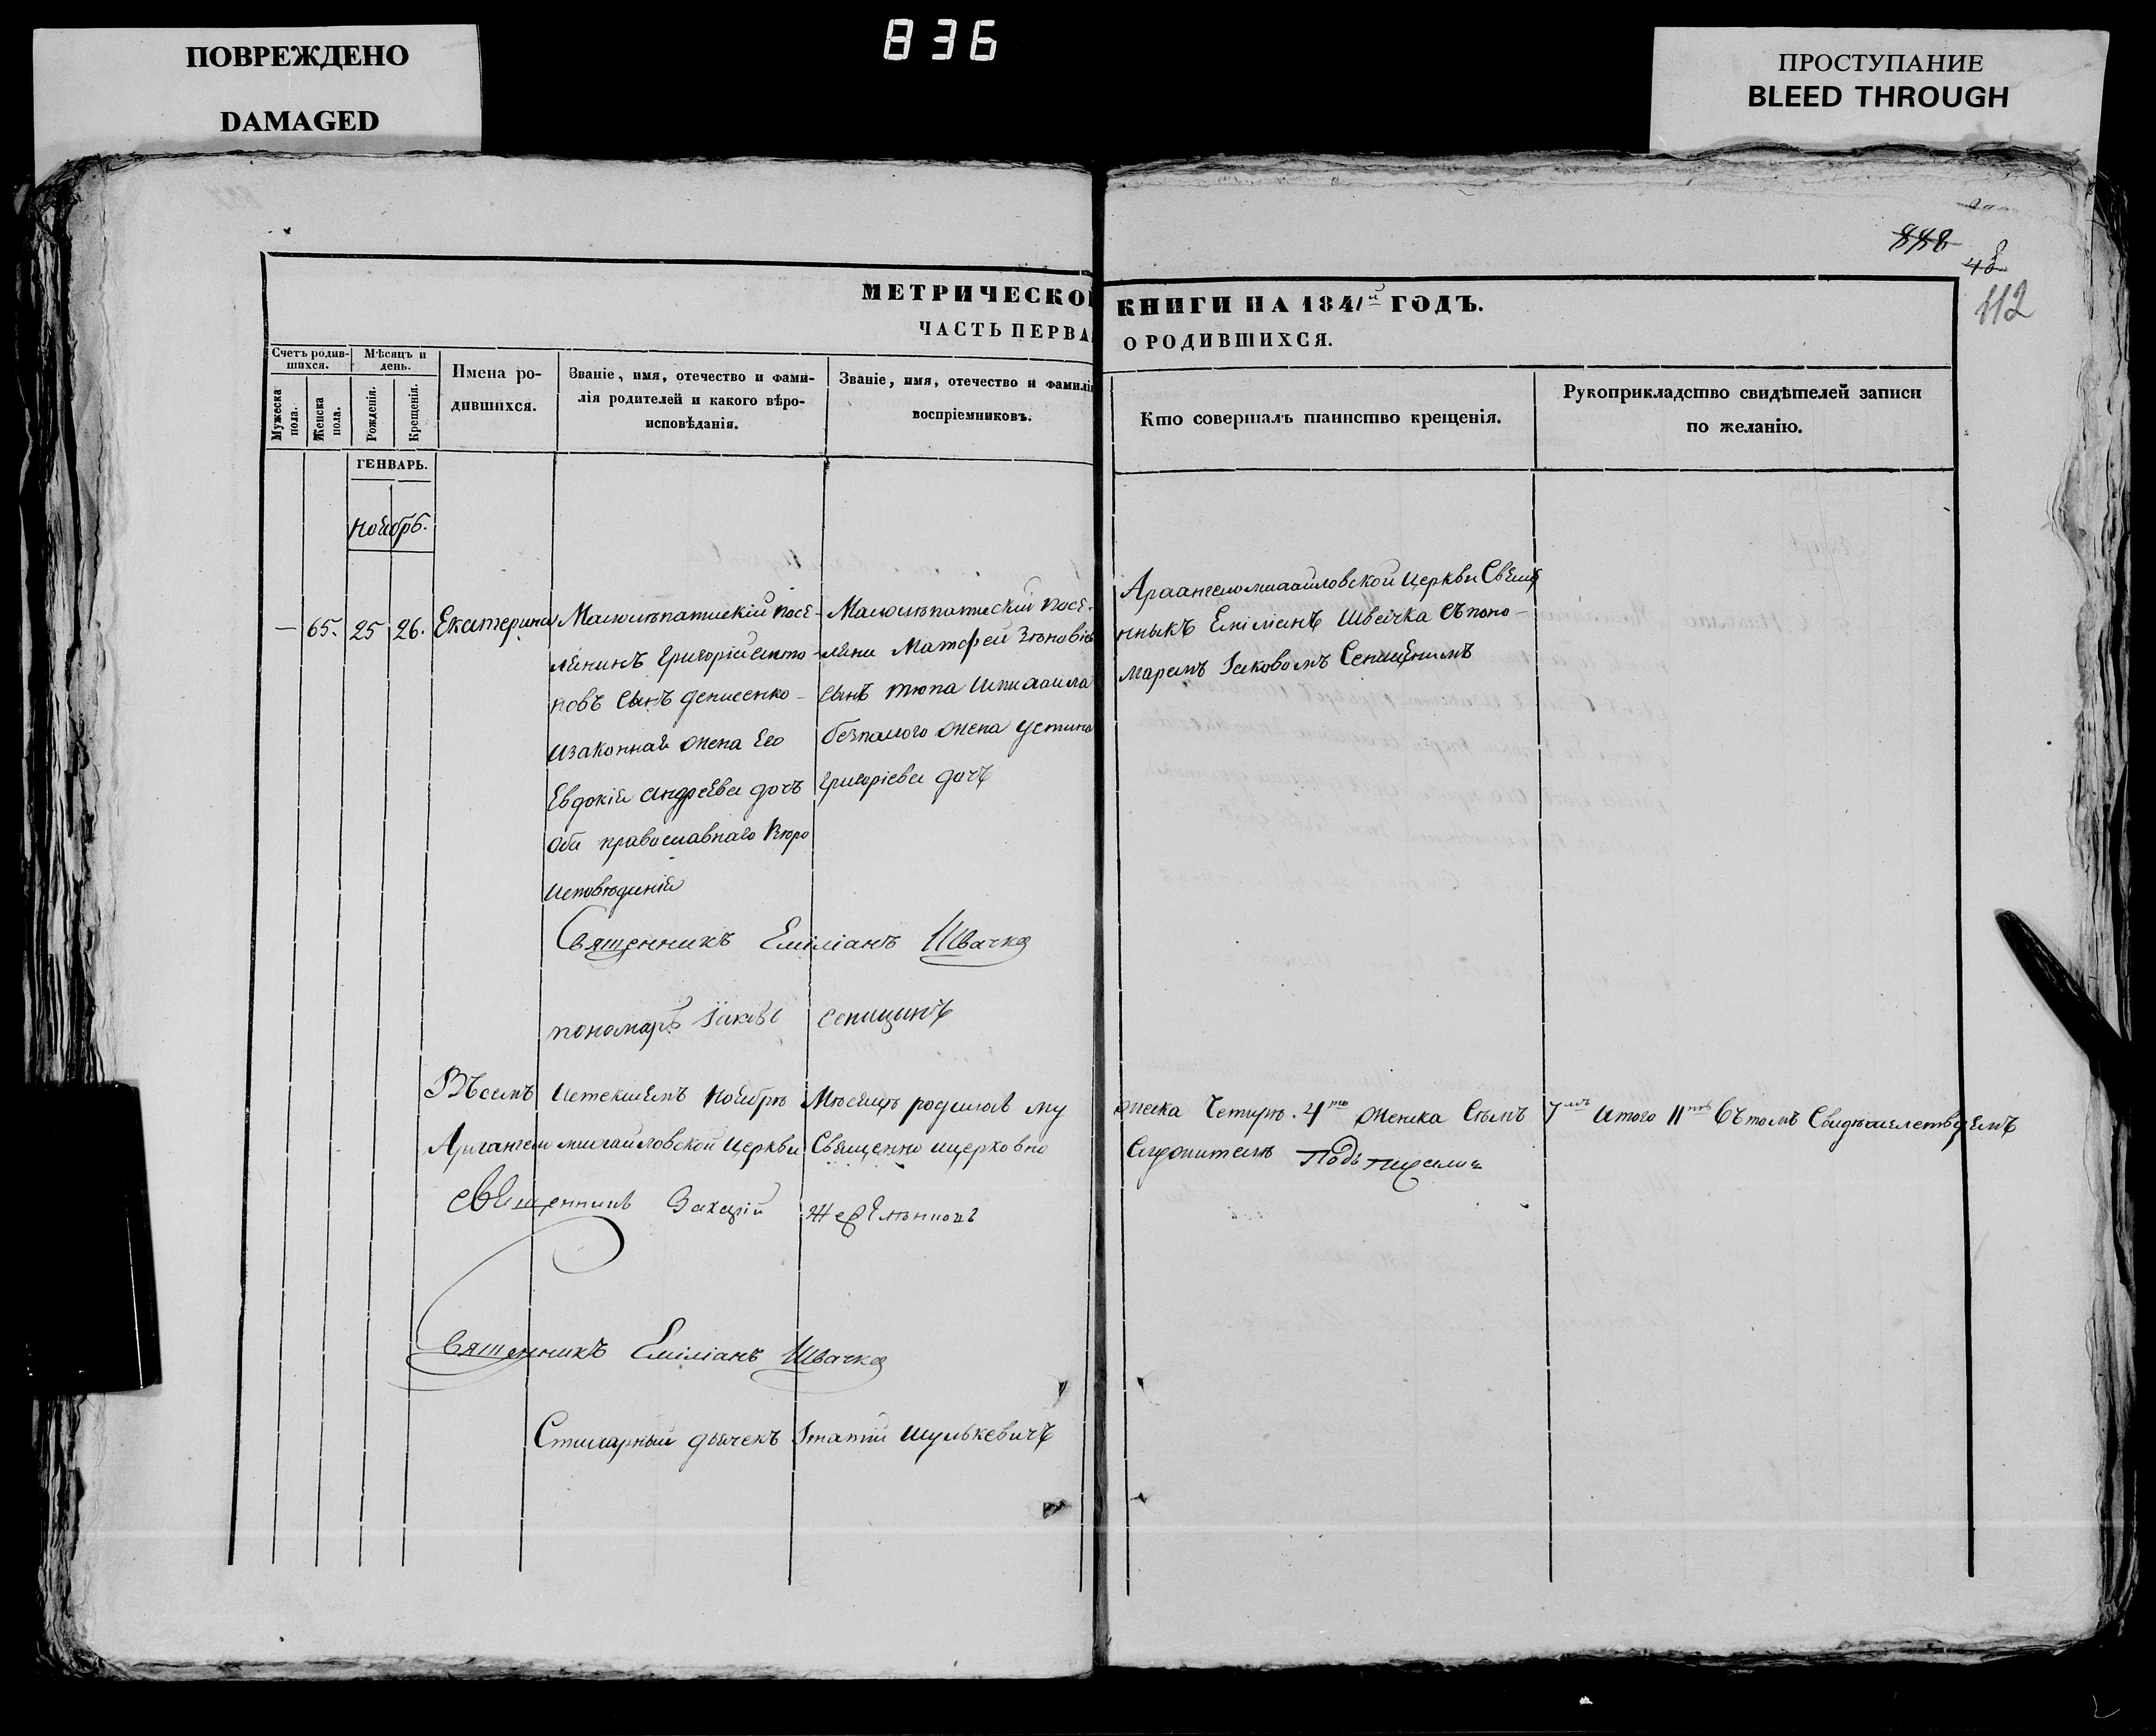 836
ПОВРЕЖДЕНО
DAMAGED
ПРОСТУПАНИЕ
BLEED THROUGH
112
МЕТРИЧЕСКОЙ КНИГИ НА 1841й ГОДЪ.
ЧАСТЬ ПЕРВА О РОДИВШИХСЯ.
Счетъ родив-
шихся.
Мужеска пола.
Женска пола.
Мѣсяцъ и
день.
Рожденія.
Крещенія.
Имена ро-
дившихся.
Званіе, имя, отечество и фами-
лія родителей и какого вѣро-
исповѣданія.
Званіе, имя, отечество и фамилія
воспріемниковъ.
Кто совершалъ таинство крещенія.
Рукоприкладство свидѣтелей записи
по желанію.
ГЕНВАРЬ.
Ноябрь.
— 65. 25 26. Екатерина
посе-
лянинъ Григорій Анто-
новъ сынъ Денисенко
и законная жена его
Евдокія Андреева дочь
оба православнаго вѣро
исповѣданія
посе-
ляни Матфей Зѣновіевъ
сынъ Тюпа и Михаила
безпалого жена Устина
Григоріева дочь
Архангеломихайловской церкви Свяще
нникъ Емиліанъ Швачка съ поно-
маремъ Іаковомъ Сеницинымъ
Священникъ Емиліанъ Швачка
пономарь Іаковъ Сеницынъ
Въ семъ истекшемъ Ноябрѣ мѣсяцѣ родилось му жеска четыре. 4ре женска семь 7мь итого 11ть въ томъ свидѣтелствуемъ
Архангеломихайловской церкви Священно и церковно служители Подъписались
Священникъ Захарій
Священникъ Емиліанъ Швачка
Стихарный дьячекъ Игнатій Шулькевичъ